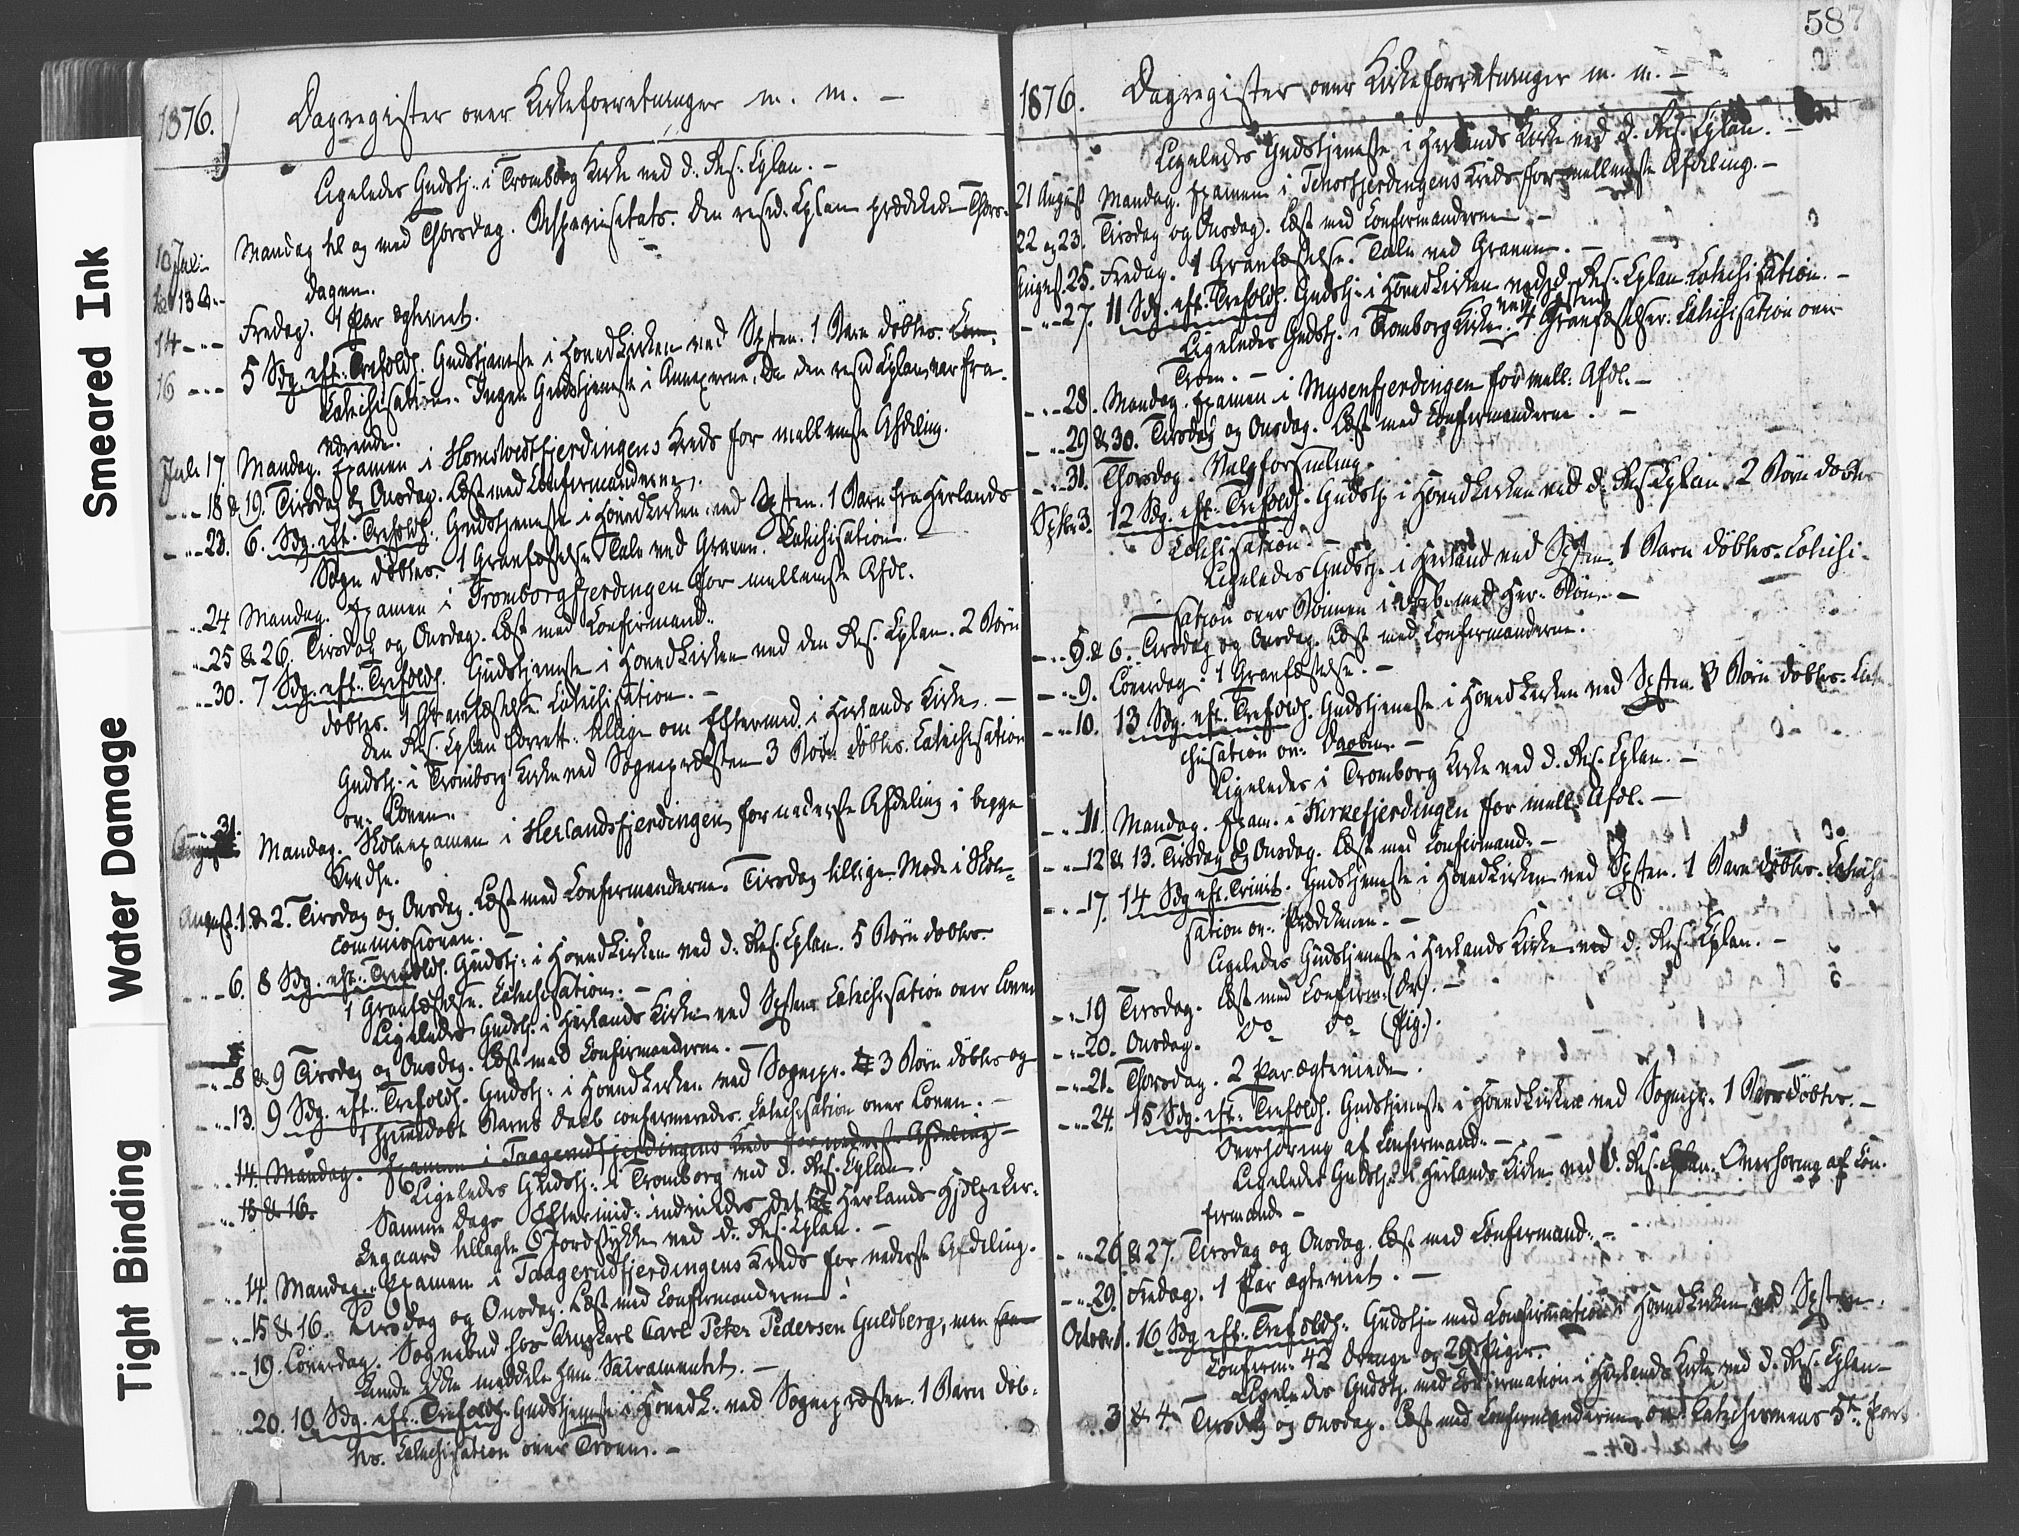 Smeared Ink
Water Damage
Tight Binding
1876. Dagregister over Kirkeforretninger m. m. –
Ligeledes Gudstj. i Tromborg Kirke ved d. Res. Cplan. –
10 Juli
til 13 Mandag til og med Thorsdag. Den resid. Cplan prædikede Thors-
dagen.
14 – Fredag. 1 Par ægteviet.
16 – 5 Sdg. eft. Trefoldh. Gudstjeneste i Hovedkirken ved Spsten. 1 Barn døbtes.
Catechisation. Ingen Gudstjeneste i Annexerne, da den resid Cplan var fra-
værende.
Juli 17. Mandag. Examen i Homstvedtfjerdingens Kreds for mellemste Afdeling.
– 18 & 19. Tirsdag & Onsdag. Læst med Confirmanderne.
– 23. 6. Sdg. eft. Trefoldh. Gudstjeneste i Hovedkirken ved Spsten. 1 Barn fra Herlands
Sogn døbtes. 1 Gravfæstelse. Tale ved Graven. Catechisation. –
– 24 Mandag. Examen i Tromborgfjerdingen for mellemste Afdl.
– 25 & 26. Tirsdag og Onsdag. Læst med Confirmand.
– 30. 7 Sdg. eft. Trefoldh. Gudstjeneste i Hovedkirken ved den Res. Cplan. 2 Børn
døbtes. 1 Gravfæstelse. Catechisation. –
Den Res. Cplan forrett. tillige om Eftermid. i Herlands Kirke. –
Gudstj. i Tromborg Kirke ved Sognepræsten 3 Børn døbtes. Catechisation
ov. Loven.
– 31. Mandag. Skoleexamen i Herlandsfjerdingen for nederste Afdeling i begge
Kredse.
August. 1 & 2. Tirsdag og Onsdag. Læst med Confirmanderne. Tirsdag tillige Møde i Skole-
commissionen. –
– 6. 8 Sdg. eft. Trefoldh. Gudstj. i Hovedkirken ved d. Res. Cplan. 5 Børn døbtes.
1 Gravfæstelse. Catechisation. –
Ligeledes Gudstj. i Herlands Kirke ved Spsten Catechisation over Loven
– 8 & 9 Tirsdag og Onsdag. Læst med Confirmanderne. –
– 13. 9 Sdg. eft. Trefoldh. Gudstj. i Hovedkirken ved Sognepr. 3 Børn døbtes og
1 hjemmedøbt Barns Daab confirmeredes. Catechisation over Loven. –
– 14. Mandag. Examen i Taagerudfjerdingens Kreds for nederste Afdeling –
Ligeledes Gudstj. i Tromborg ved d. Res. Cplan.
– 15 & 16. Samme Dags Eftermid. indviedes det Herlands Hjelpekir-
kegaard tillagte Jordstykke ved d. Res. Cplan. –
– 14. Mandag. Examen i Taagerudfjerdingens Kreds for nederste Afdeling.
– 15 & 16. Tirsdag og Onsdag. Læst med Confirmanderne.
– 19. Løverdag. Sognebud hos Ungkarl Carl Peter Pedersen Guldberg, men
kunde ikke meddele ham Sacramentet. –
– 20. 10 Sdg. eft. Trefoldh. Gudstjeneste i Hovedk. ved Sognepræsten. 1 Barn døb-
tes. Catechisation over Troen. –
587
1876. Dagregister over Kirkeforretninger m. m. –
Ligeledes Gudstjeneste i Herlands Kirke ved d. Res. Cplan. –
21 August Mandag. Examen i Tenorfjerdingens Kreds for mellemste Afdeling. –
22 og 23. Tirsdag og Onsdag. Læst med Confirmanderne. –
August 25. Fredag. 1 Gravfæstelse. Tale ved Graven. –
– 27. 11 Sdg. eft. Trefoldh. Gudstj. i Hovedkirken ved d. Res. Cplan. Catechisation. –
Ligeledes Gudstj. i Tromborg Kirke ved Spsten 4 Gravfæstelser. Catechisation over
Troen. –
– 28. Mandag. Examen i Mysenfjerdingen for mell. Afdl. –
– 29 & 30. Tirsdag og Onsdag. Læst med Confirmanderne. –
– 31. Thorsdag. Valgforsamling.
Sptbr 3. 12 Sdg. eft. Trefoldh. Gudstj. i Hovedkirken ved d. Res. Cplan. 2 Børn døbtes
Catechisation. –
Ligeledes Gudstj. i Herland ved Spsten. 1 Barn døbtes. Catechi-
sation over Bønnen i
– 5. & 6. Tirsdag og Onsdag. Læst med Confirmanderne.
– 9. Løverdag. 1 Gravfæstelse. –
– 10. 13 Sdg. eft. Trefoldh. Gudstjeneste i Hovedkirken ved Spsten. 3 Børn døbtes. Cate-
chisation ov. Daaben. –
Ligeledes i Tromborg Kirke ved d. Res. Cplan. –
– 11. Mandag. Exam. i Kirkefjerdingen for mell. Afdl. –
– 12 & 13. Tirsdag & Onsdag. Læst med Confirmand. –
– 17. 14 Sdg eft. Trinit. Gudstjeneste i Hovedkirken ved Spsten. 1 Barn døbtes. Catechi-
sation ov. Prædikenen. –
Ligeledes Gudstjeneste i Herlands Kirke ved d. Res. Cplan. –
– 19 Tirsdag. Læst med Confirm. (Dr). –
– 20. Onsdag. do do (Pig.).
– 21. Thorsdag. 2 Par ægteviede.
– 24. 15 Sdg. eft. Trefoldh. Gudstjeneste i Hovedkirken ved Sognepr. 1 Barn døbtes. –
Overhøring af Confirmand. –
Ligeledes Gudstj. i Herlands Kirke ved d. Res. Cplan. Overhøring af Con-
firmand. –
– 26 & 27. Tirsdag og Onsdag. Læst med Confirmand. –
– 29. Fredag. 1 Par ægteviet. –
October 1. 16 Sdg. eft. Trefoldh. Gudstj. med Confirmation i Hovedkirken ved Spsten.
Confirm. 42 Drenge og 29 Piger.
Ligeledes Gudstj. med Confirmation i Herlands Kirke ved d. Res. Cplan –
– 3 & 4. Tirsdag og Onsdag. Læst med Confirmanderne ov. Catechismens 5te Part